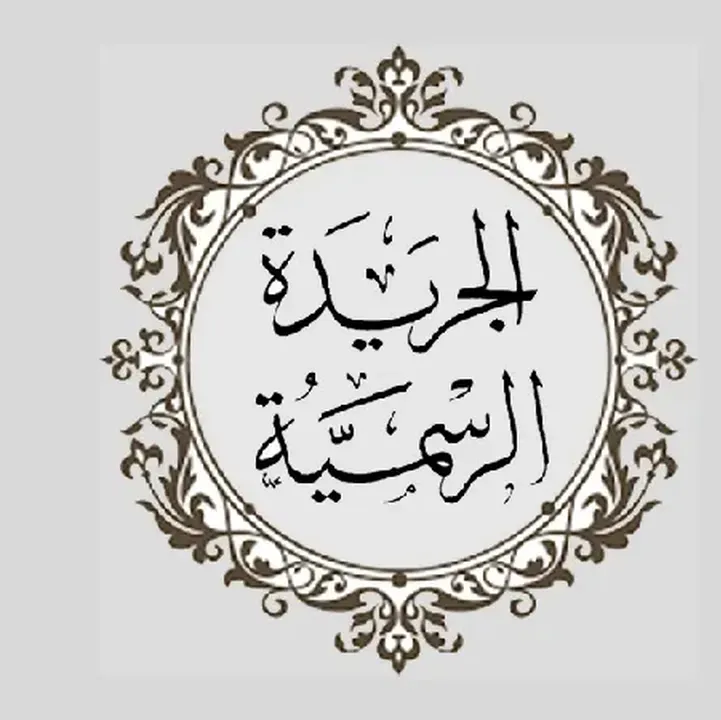 الجريدة
الرسميّة